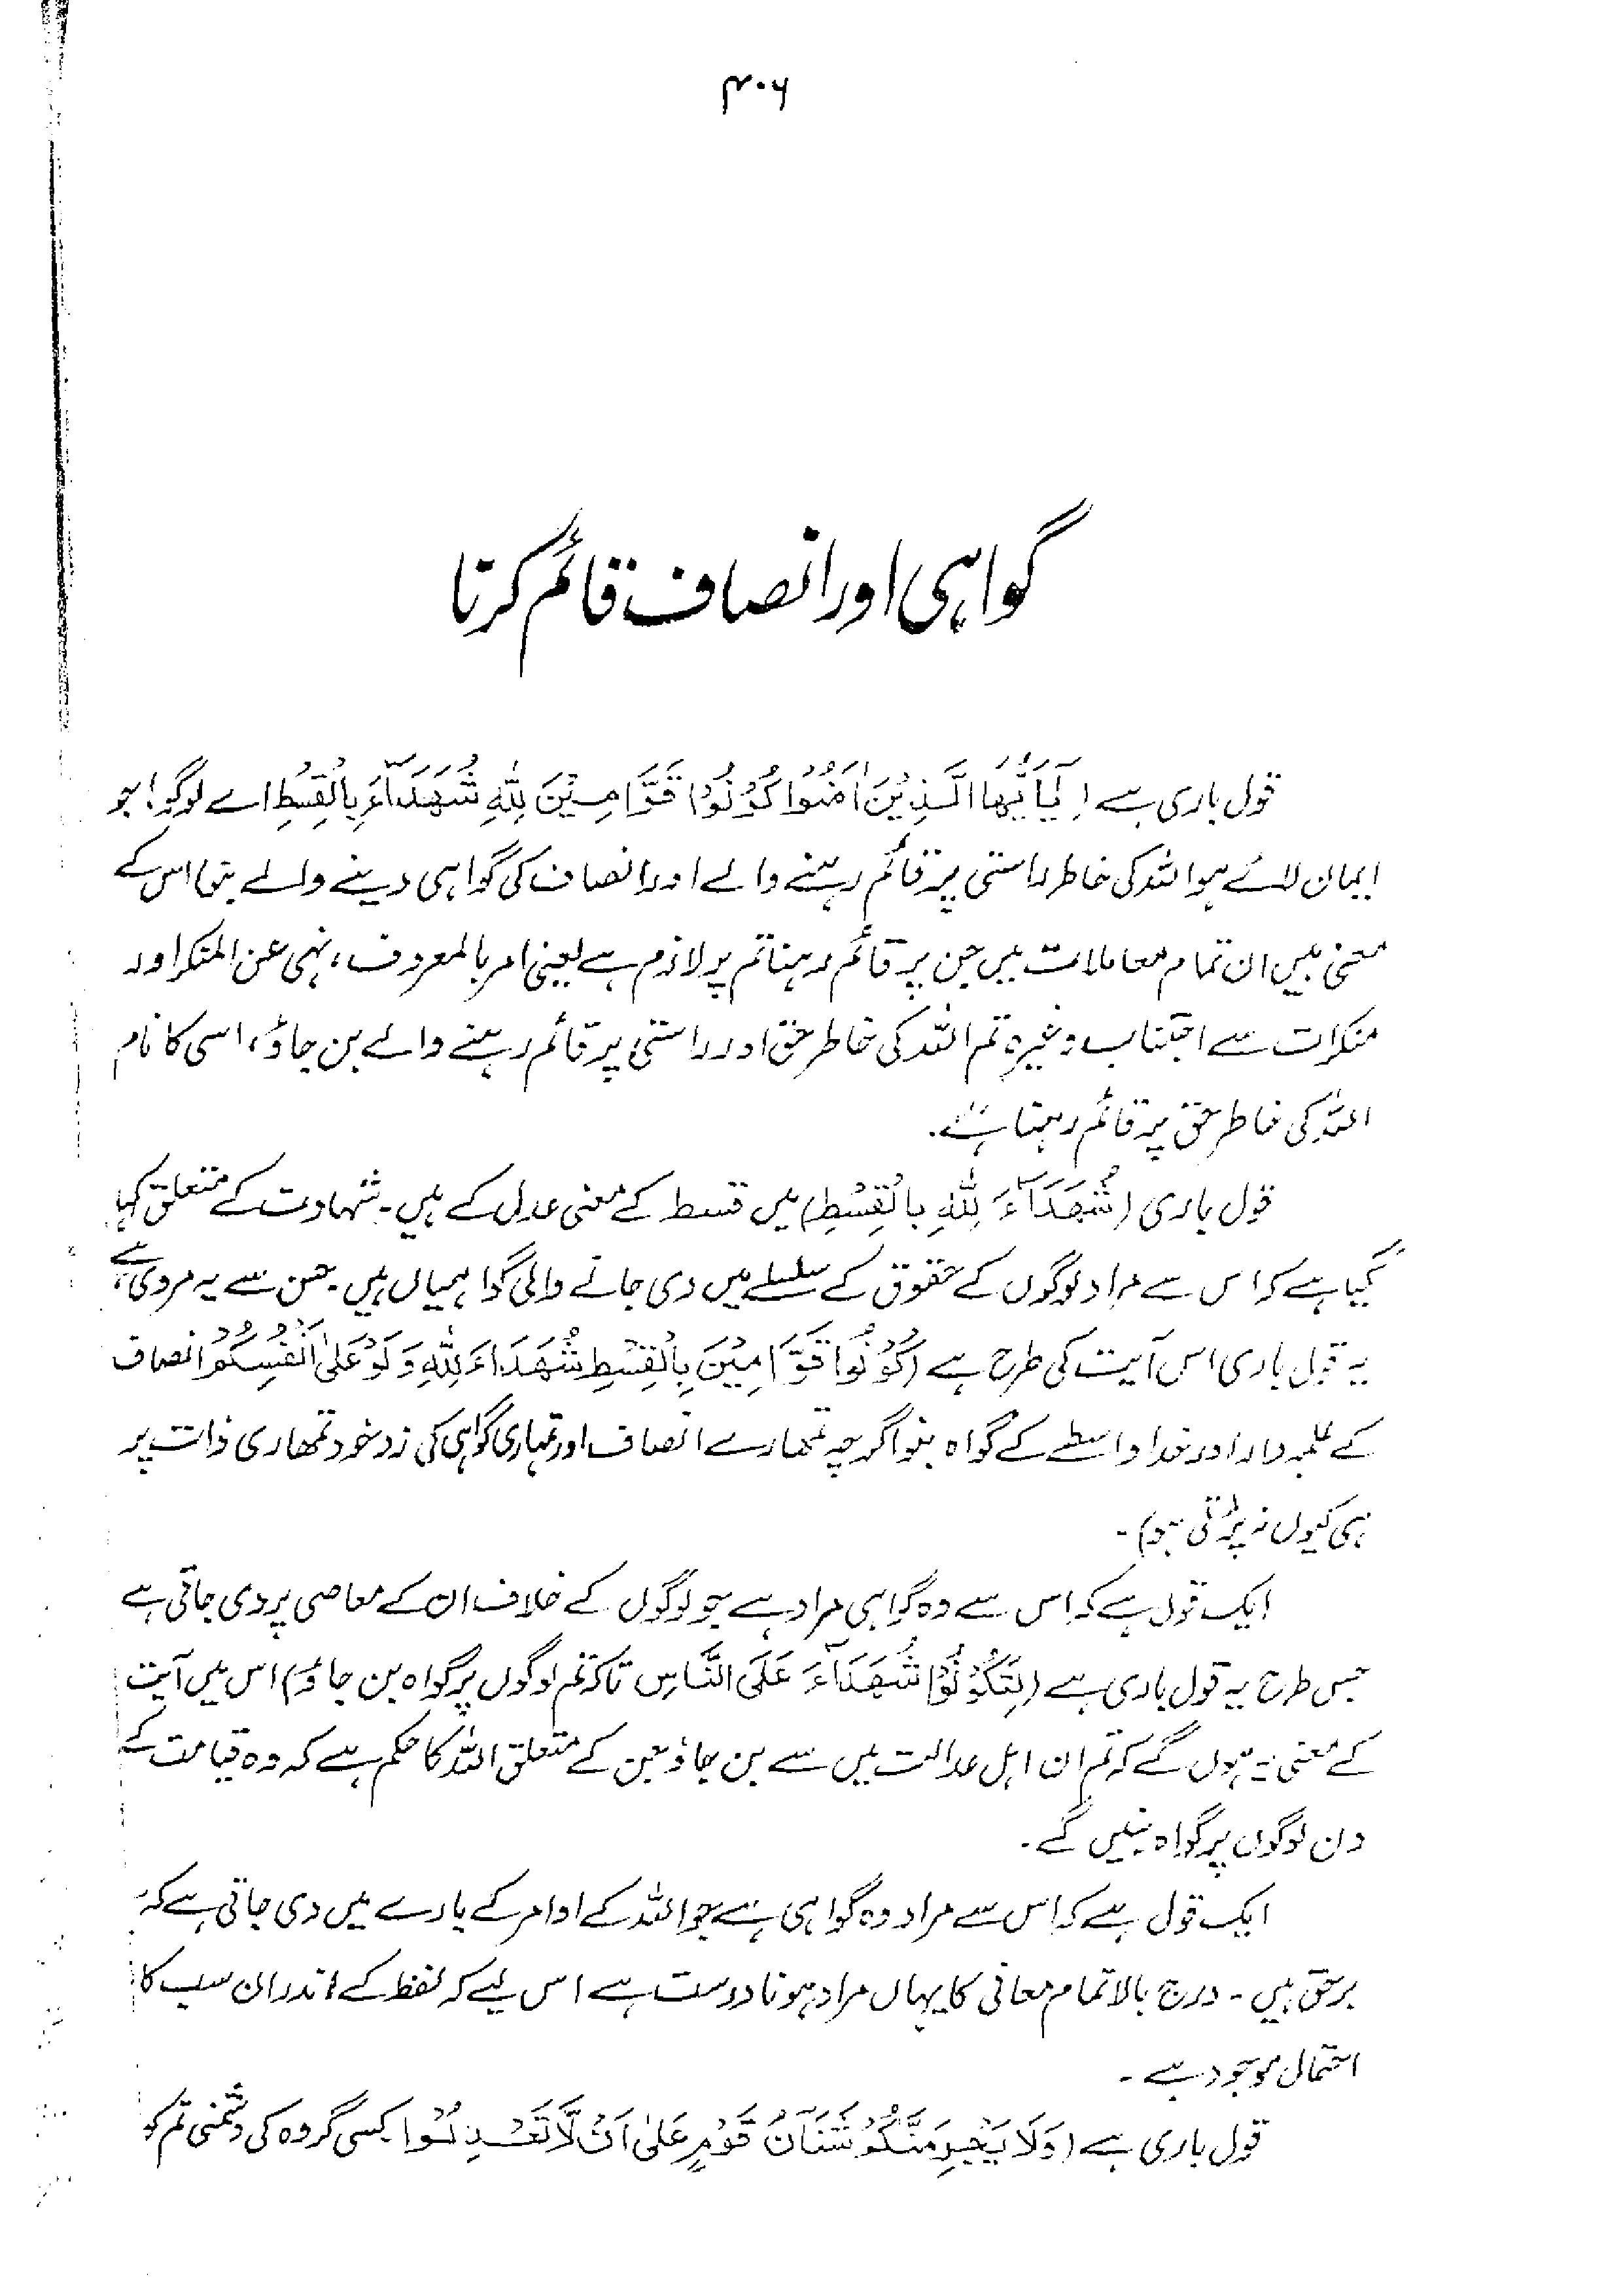 ۴۰۶
گواہی اور انصاف قائم کرنا
قول باری ہے (یٰٓاَیُّہَا الَّذِیْنَ اٰمَنُوْا کُوْنُوْا قَوَّامِیْنَ لِلّٰہِ شُہَدَآءَ بِالْقِسْطِ اے لوگو! جو
ایمان لائے ہو اللہ کی خاطر راستی پر قائم رہنے والے اور انصاف کی گواہی دینے والے بنو) اس کے
معنی ہیں ان تمام معاملات میں جن پر قائم رہنا تم پر لازم ہے یعنی امر بالمعروف، نہی عن المنکر اور
منکرات سے اجتناب وغیرہ تم اللہ کی خاطر حق اور راستی پر قائم رہنے والے بن جاؤ، اسی کا نام
اللہ کی خاطر حق پر قائم رہنا ہے۔
قول باری (شُہَدَآءَ لِلّٰہِ بِالْقِسْطِ) میں قسط کے معنی عدل کے ہیں۔ شہادت کے متعلق کہا
گیا ہے کہ اس سے مراد لوگوں کے حقوق کے سلسلے میں دی جانے والی گواہیاں ہیں۔ حسن سے یہ مروی ہے،
یہ قول باری اس آیت کی طرح ہے (کُوْنُوْا قَوَّامِیْنَ بِالْقِسْطِ شُہَدَاءَ لِلّٰہِ وَلَوْ عَلٰی اَنْفُسِکُمْ انصاف
کے علمبردار اور خدا واسطے کے گواہ بنو اگرچہ تمھارے انصاف اور تمہاری گواہی کی زد خود تمھاری ذات پر
ہی کیوں نہ پڑتی ہو)۔
ایک قول ہے کہ اس سے وہ گواہی مراد ہے جو لوگوں کے خلاف ان کے معاصی پر دی جاتی ہے
جس طرح یہ قول باری ہے (لِتَکُوْنُوْا شُہَدَآءَ عَلَی النَّاسِ تاکہ تم لوگوں پر گواہ بن جاؤ) اس میں آیت
کے معنی یہ ہوں گے کہ تم ان اہل عدالت میں سے بن جاؤ جن کے متعلق اللہ کا حکم ہے کہ وہ قیامت کے
دن لوگوں پر گواہ بنیں گے۔
ایک قول ہے کہ اس سے مراد وہ گواہی ہے جو اللہ کے اوامر کے بارے میں دی جاتی ہے کہ
برحق ہیں۔ درج بالا تمام معانی کا یہاں مراد ہونا درست ہے اس لیے کہ لفظ کے اندر ان سب کا
احتمال موجود ہے۔
قول باری ہے (وَلَا یَجْرِمَنَّکُمْ شَنَاٰنُ قَوْمٍ عَلٰی اَنْ لَّا تَعْدِلُوْا کسی گروہ کی دشمنی تم کو